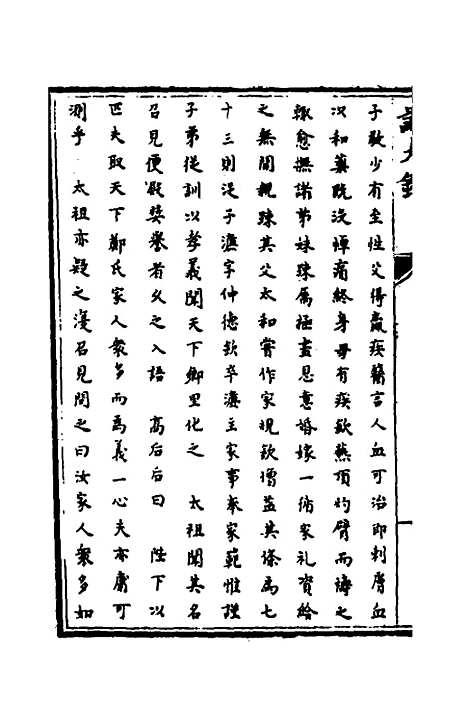 子敎少有至性父得羸疾醫言人血可治即刺膚血
况和藥既沒悼痛終身母有疾欽爇頂灼臂而禱之
輒愈撫諸弟妹踈属極盡恩意婚嫁一循家礼資給
之無間親踈其父太和嘗作家規欽增益其條爲七
十三則從子濂字仲德欽卒濂主家事奉家範惟謹
子弟従訓以孝義聞天下鄉里化之　太祖聞其名
召見便殿奬譽者乆之入語　高后后曰　陛下以
匹夫取天下鄭氏家人衆多而爲義一心夫亦庸可
測乎　太祖亦疑之湲召見問之曰汝家人衆多如